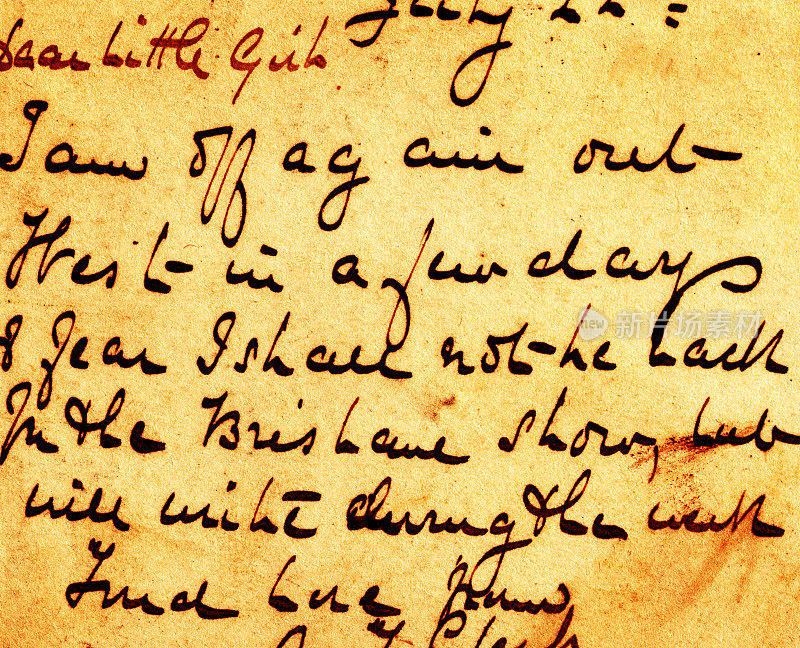 July 22:
Dear Little Girl
I am off again out
West in a few days
& fear I shall not be back
for the Brisbane show, but
will write during the week
Fond love from
new 新片场素材